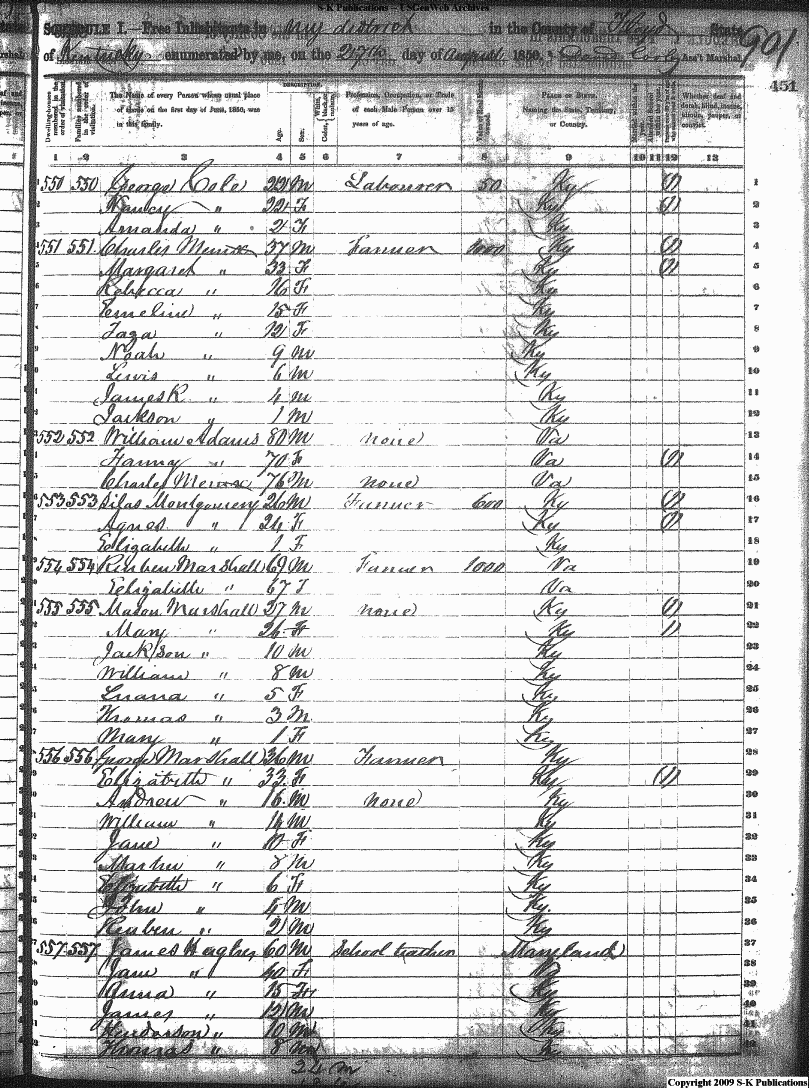 S-K Publications - USGenWeb Archives
SCHEDULE I.—Free Inhabitants in My district in the County of Floyd State
of Kentucky enumerated by me, on the 27th day of August 1850. David Cooley Ass't Marshal.
901
451
DESCRIPTION.
The Name of every Person whose usual place of abode on the first day of June, 1850, was in this family.
Age.
Sex.
Profession, Occupation, or Trade of each Male Person over 15 years of age.
PLACE OF BIRTH. Naming the State, Territory, or Country.
Whether deaf and dumb, blind, insane, idiotic, pauper, or convict.
1 2 3 4 5 6 7 8 9 10 11 12 13
550 550 George Cole 22 M Labourer 50 Ky (1) 1
Nancy " 22 F Ky (1) 2
Amanda " 2 F Ky 3
551 551 Charles 37 M Farmer 1000 Ky (1) 4
Margaret " 33 F Ky (1) 5
Rebecca " 16 F Ky 6
Emeline " 15 F Ky 7
" 12 F Ky 8
Noah " 9 M Ky 9
Lewis " 6 M Ky 10
James R " 4 M Ky 11
Jackson " 1 M Ky 12
552 552 William Adams 80 M none Va 13
Fanny " 70 F Va (1) 14
Charles 76 M none Va 15
553 553 Silas Montgomery 26 M Farmer 600 Ky (1) 16
Agnes " 24 F Ky (1) 17
Elizabeth " 1 F Ky 18
554 554 Reuben Marshall 69 M Farmer 1000 Va 19
Eelizabeth " 67 F Va 20
555 555 Mason Marshall 27 M none Ky (1) 21
Mary " 26 F Ky 1) 22
Jackson " 10 M Ky 23
William " 8 M Ky 24
Luana " 5 F Ky 25
Thomas " 3 M Ky 26
Mary " 1 F Ky 27
556 556 George Marshall 36 M Farmer Ky 28
Elizabeth " 33 F Ky (1) 29
Andrew " 16 M none Ky 30
William " 14 M Ky 31
Jane " F Ky 32
Martin " 8 M Ky 33
Elizabeth " 6 F Ky 34
John " 4 M Ky. 35
Reuben " 2 M Ky 36
557 557 James Hughes 60 M School teacher Maryland 37
Jane " 40 F 38
Anna " 15 F Ky 39
James " 12 M Ky 40
Henderson " 10 M Ky
Thomas " 8 M Ky
24 M
Copyright 2009 S-K Publications